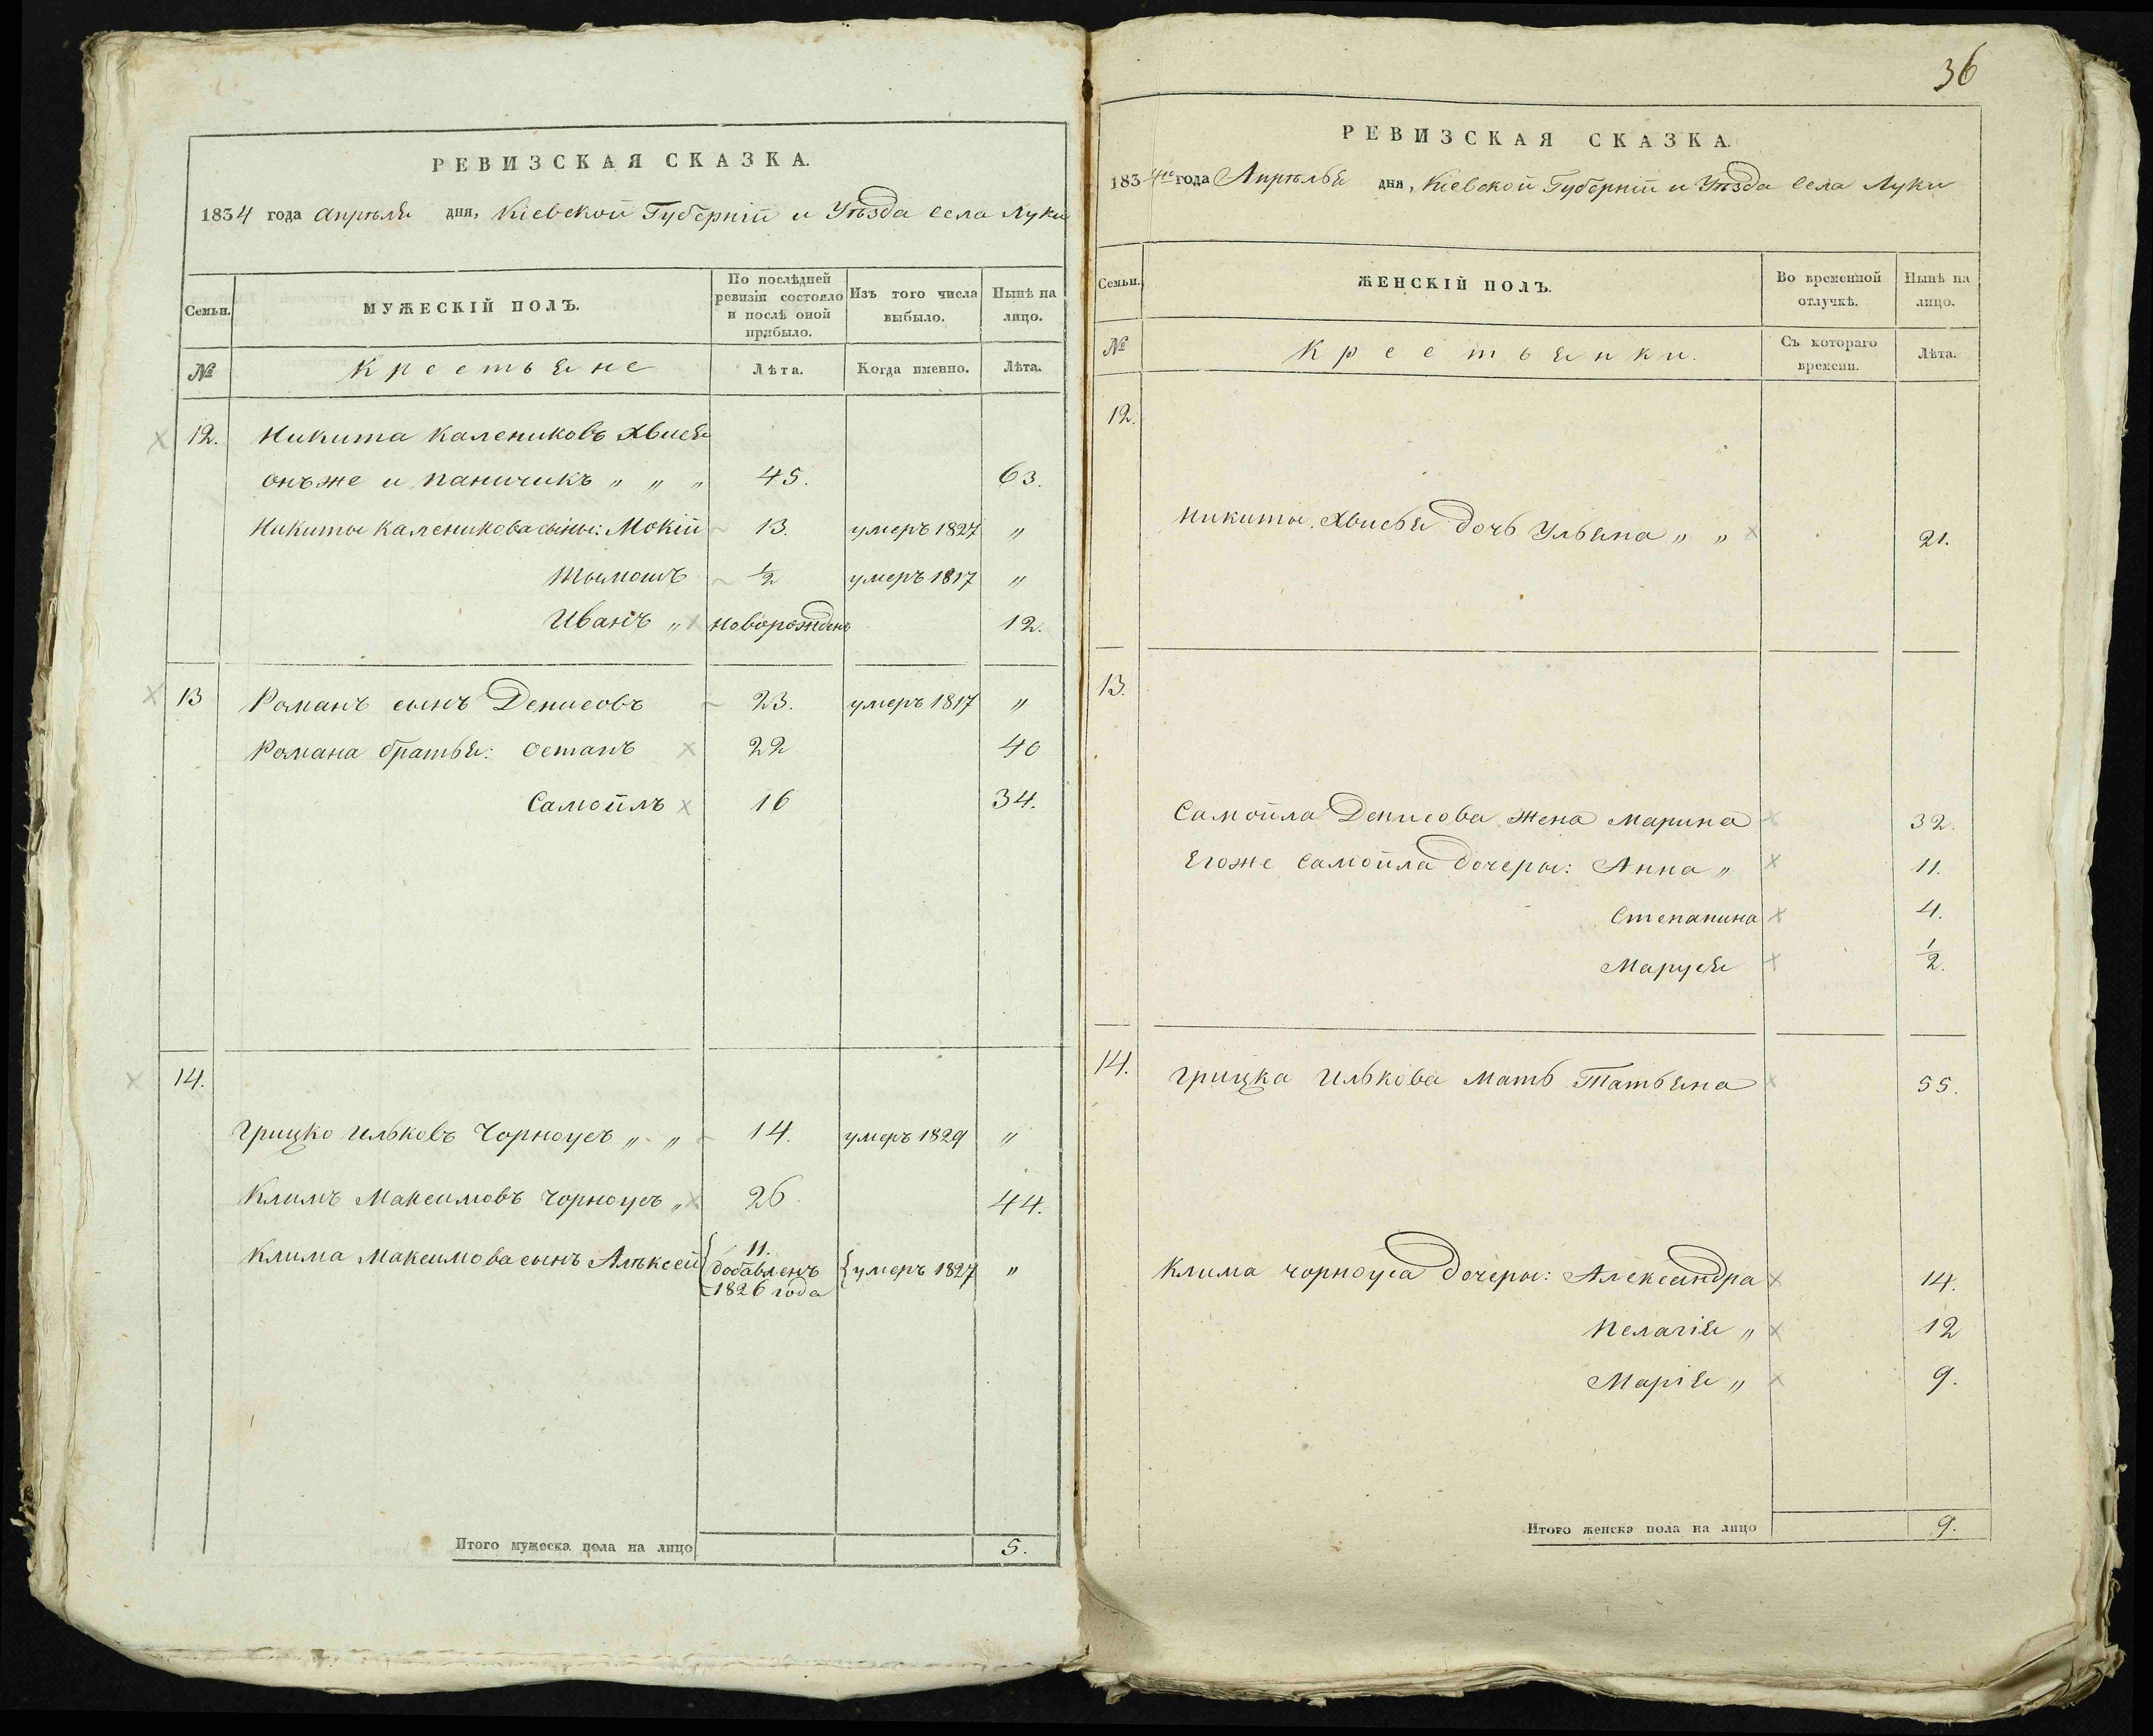 РЕВИЗСКАЯ СКАЗКА.
1834 года апрѣля дня, Кіевской Губерніи и Уѣзда села Луки
Семьи.
МУЖЕСКІЙ ПОЛЪ.
По послѣдней ревизіи состояло и послѣ оной прибыло.
Изъ того числа выбыло.
Нынѣ на лицо.
№
Крестьяне
Лѣта.
Когда именно.
Лѣта.
12. Никита Калениковъ Хвися
онъ же и Паничикъ " " " 45. 63.
Никиты Каленикова сыны: Мокій 13. умеръ 1827 "
Тымошъ 1/2 умеръ 1817 "
Иванъ " новорожденъ 12.
13 Романъ сынъ Денисовъ 23. умеръ 1817 "
Романа братья: Остапъ 22 40
Самойлъ 16 34.
14.
Грицко Ильковъ Чорноусъ " " 14. умеръ 1829 "
Климъ Максимовъ Чорноусъ " 26. 44.
Клима Максимова сынъ Алѣксей { 11. добавленъ 1826 года { умеръ 1827 "
Итого мужеска пола на лицо 5.
36
РЕВИЗСКАЯ СКАЗКА.
1834го года Апрѣля дня, Кіевской Губерніи и Уѣзда села Луки
Семьи.
ЖЕНСКІЙ ПОЛЪ.
Во временной отлучкѣ.
Нынѣ на лицо.
№
Крестьянки.
Съ котораго времени.
Лѣта.
12.
Никиты Хвисья дочь Ульяна " " 21.
13.
Самойла Денисова жена Марина 32.
Егоже Самойла дочеры: Анна " 11.
Степанина 4.
Маруся 1/2.
14. Грицка Илькова мать Татьяна 55.
Клима Чорноуса дочеры: Александра 14.
Пелагія " 12
Марія " 9.
Итого женска пола на лицо 9.